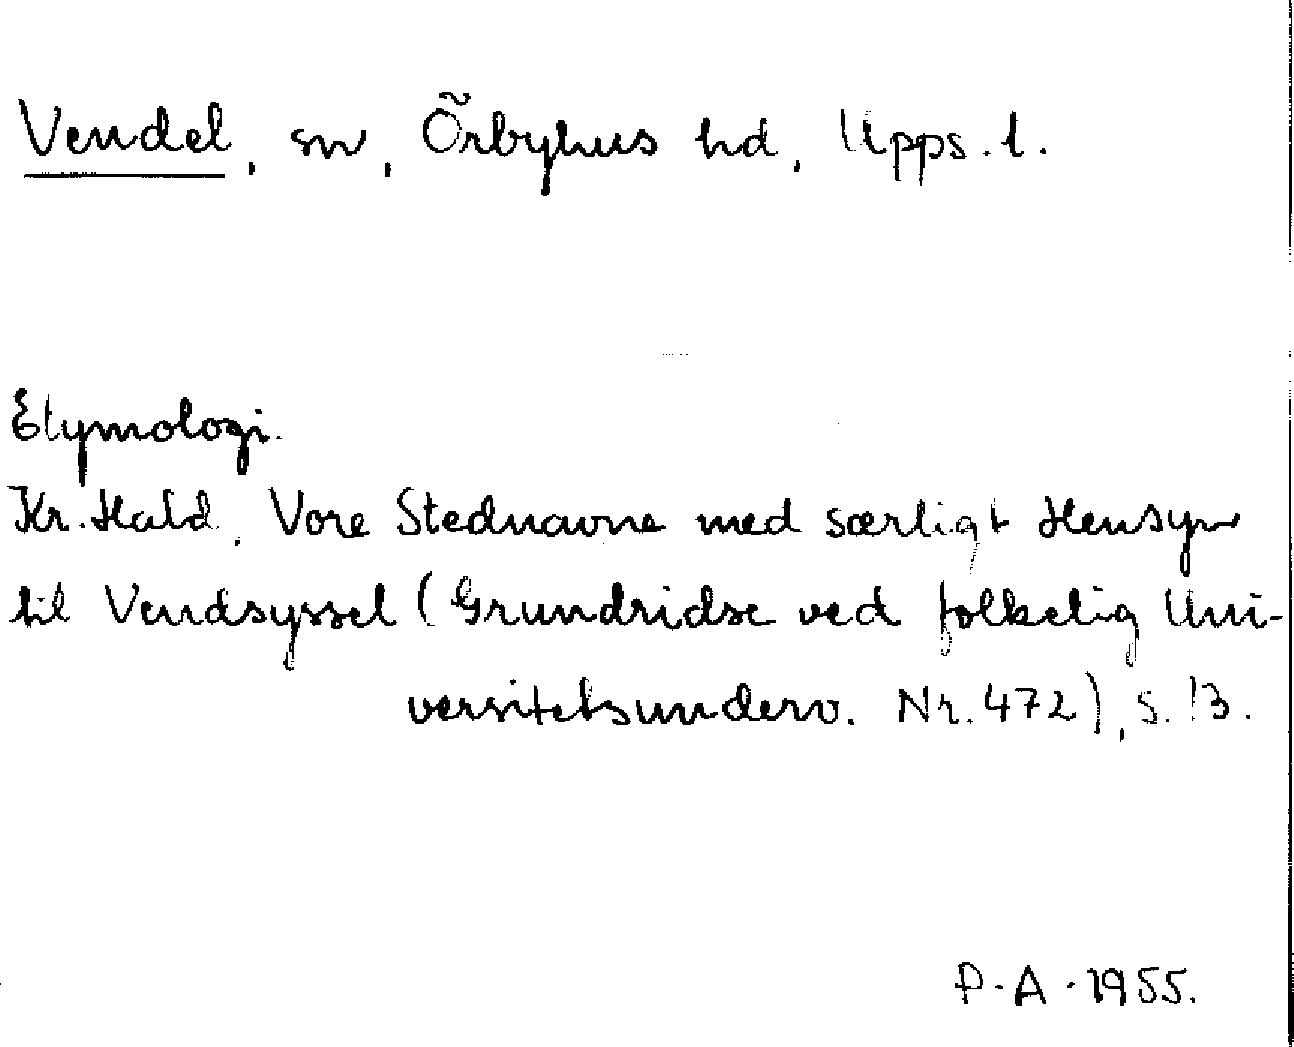 Vendel, sn, Örbyhus hd, Upps. l.
Etymologi.
Kr. Hald, Vore Stednavne med særligt Hensyn
til Vendsyssel (Grundridse ved folkelig Uni-
versitetsunderv. Nr. 472), s. 13.
P.A. 1955.